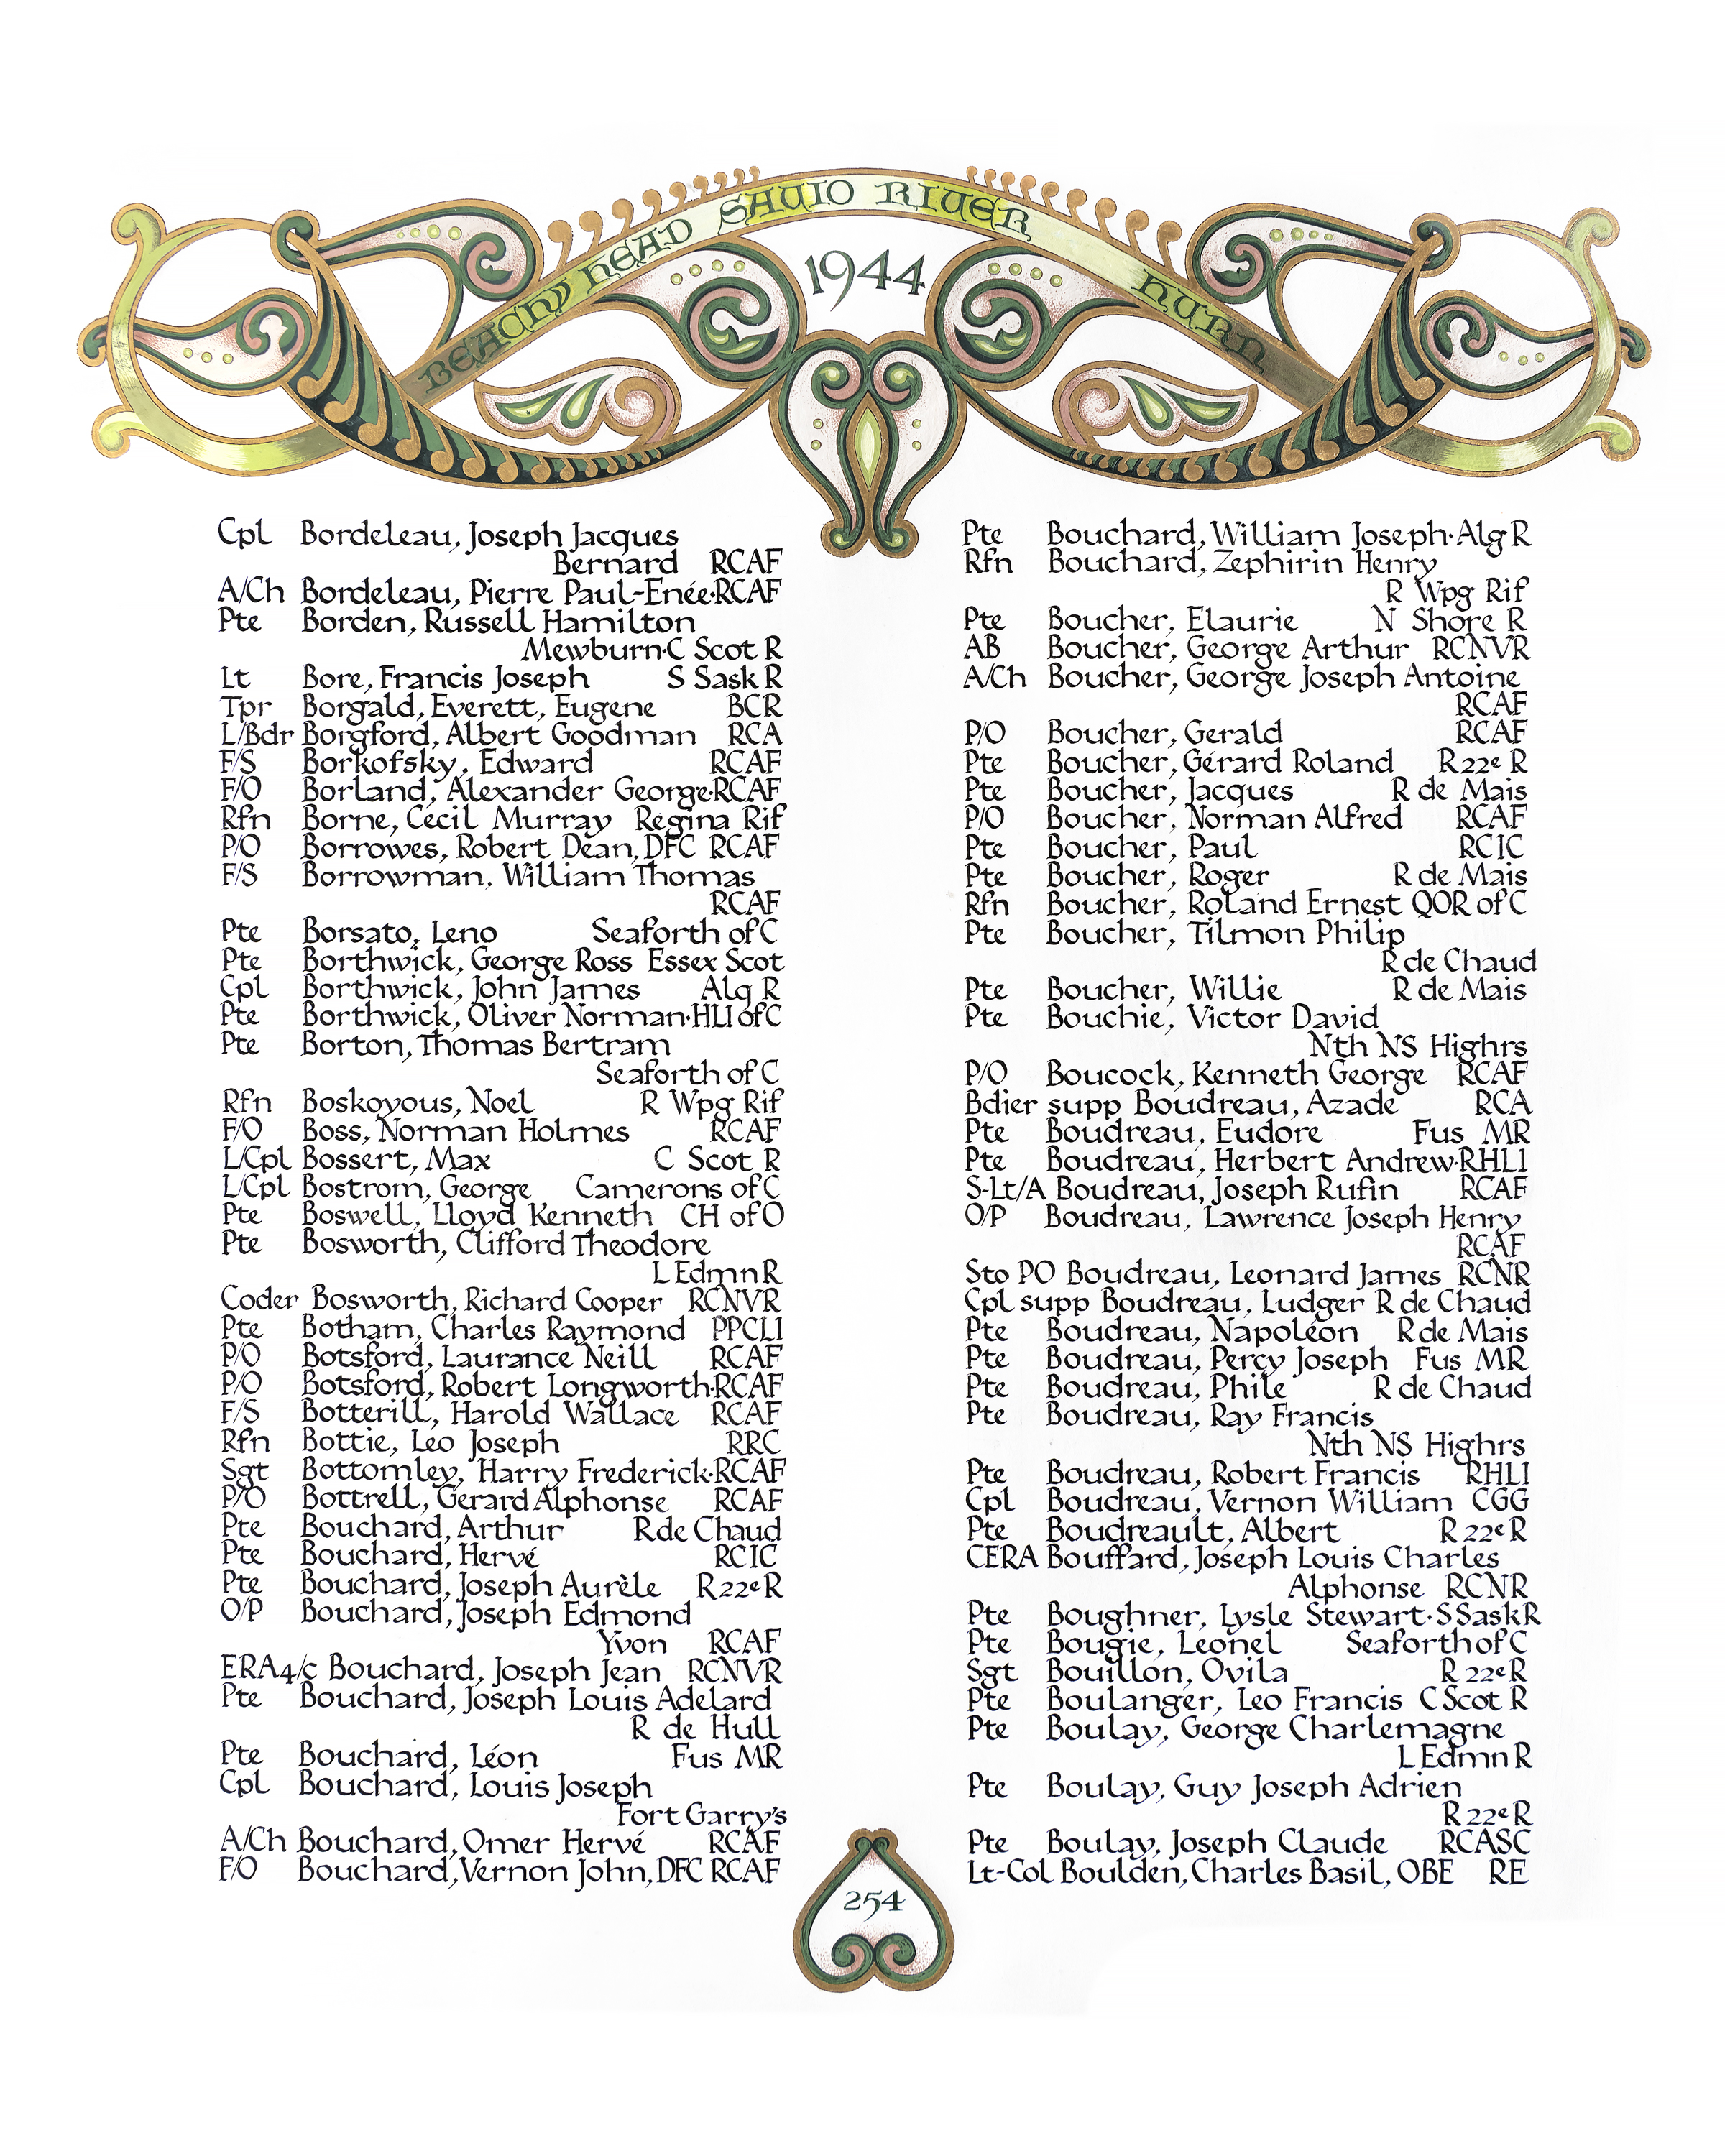 BEACHY HEAD SAVIO RIVER HURN
1944
Cpl Bordeleau, Joseph Jacques
Bernard RCAF
A/Ch Bordeleau, Pierre Paul-Enée·RCAF
Pte Borden, Russell Hamilton
Mewburn·C Scot R
Lt Bore, Francis Joseph S Sask R
Tpr Borgald, Everett, Eugene BCR
L/Bdr Borgford, Albert Goodman RCA
F/S Borkofsky, Edward RCAF
F/O Borland, Alexander George·RCAF
Rfn Borne, Cecil Murray Regina Rif
P/O Borrowes, Robert Dean, DFC RCAF
F/S Borrowman, William Thomas
RCAF
Pte Borsato, Leno Seaforth of C
Pte Borthwick, George Ross Essex Scot
Cpl Borthwick, John James Alg R
Pte Borthwick, Oliver Norman·HLI of C
Pte Borton, Thomas Bertram
Seaforth of C
Rfn Boskoyous, Noel R Wpg Rif
F/O Boss, Norman Holmes RCAF
L/Cpl Bossert, Max C Scot R
L/Cpl Bostrom, George Camerons of C
Pte Boswell, Lloyd Kenneth CH of O
Pte Bosworth, Clifford Theodore
L Edmn R
Coder Bosworth, Richard Cooper RCNVR
Pte Botham, Charles Raymond PPCLI
P/O Botsford, Laurance Neill RCAF
P/O Botsford, Robert Longworth·RCAF
F/S Botterill, Harold Wallace RCAF
Rfn Bottie, Leo Joseph RRC
Sgt Bottomley, Harry Frederick·RCAF
P/O Bottrell, Gerard Alphonse RCAF
Pte Bouchard, Arthur R de Chaud
Pte Bouchard, Hervé RCIC
Pte Bouchard, Joseph Aurèle R 22e R
O/P Bouchard, Joseph Edmond
Yvon RCAF
ERA4/c Bouchard, Joseph Jean RCNVR
Pte Bouchard, Joseph Louis Adelard
R de Hull
Pte Bouchard, Léon Fus MR
Cpl Bouchard, Louis Joseph
Fort Garry's
A/Ch Bouchard, Omer Hervé RCAF
F/O Bouchard, Vernon John, DFC RCAF
Pte Bouchard, William Joseph·Alg R
Rfn Bouchard, Zephirin Henry
R Wpg Rif
Pte Boucher, Elaurie N Shore R
AB Boucher, George Arthur RCNVR
A/Ch Boucher, George Joseph Antoine
RCAF
P/O Boucher, Gerald RCAF
Pte Boucher, Gérard Roland R 22e R
Pte Boucher, Jacques R de Mais
P/O Boucher, Norman Alfred RCAF
Pte Boucher, Paul RCIC
Pte Boucher, Roger R de Mais
Rfn Boucher, Roland Ernest QOR of C
Pte Boucher, Tilmon Philip
R de Chaud
Pte Boucher, Willie R de Mais
Pte Bouchie, Victor David
Nth NS Highrs
P/O Boucock, Kenneth George RCAF
Bdier supp Boudreau, Azade RCA
Pte Boudreau, Eudore Fus MR
Pte Boudreau, Herbert Andrew·RHLI
S-Lt/A Boudreau, Joseph Rufin RCAF
O/P Boudreau, Lawrence Joseph Henry
RCAF
Sto PO Boudreau, Leonard James RCNR
Cpl supp Boudreau, Ludger R de Chaud
Pte Boudreau, Napoléon R de Mais
Pte Boudreau, Percy Joseph Fus MR
Pte Boudreau, Phile R de Chaud
Pte Boudreau, Ray Francis
Nth NS Highrs
Pte Boudreau, Robert Francis RHLI
Cpl Boudreau, Vernon William CGG
Pte Boudreault, Albert R 22e R
CERA Bouffard, Joseph Louis Charles
Alphonse RCNR
Pte Boughner, Lysle Stewart·S Sask R
Pte Bougie, Leonel Seaforth of C
Sgt Bouillon, Ovila R 22e R
Pte Boulanger, Leo Francis C Scot R
Pte Boulay, George Charlemagne
L Edmn R
Pte Boulay, Guy Joseph Adrien
R 22e R
Pte Boulay, Joseph Claude RCASC
Lt-Col Boulden, Charles Basil, OBE RE
254